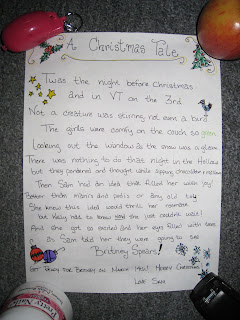 A Christmas Tale
Twas the night before Christmas
and in VT on the 3rd
Not a creature was stirring not even a bird
The girls were comfy on the couch so green
Looking out the window as the snow was a gleam
There was nothing to do that night in the Hollow
but they pondered and thought while sipping chocolate
Then Sam had an idea that filled her with joy!
Better than mani's and pedis or any old toy
She knew this idea would thrill her roomate
but Kelly had to know now she just couldn't wait!
And she got so excited and her eyes filled with tears
as Sam told her they were going to see
Britney Spears!
Get ready for Britney on March Merry Christmas
Love Sam